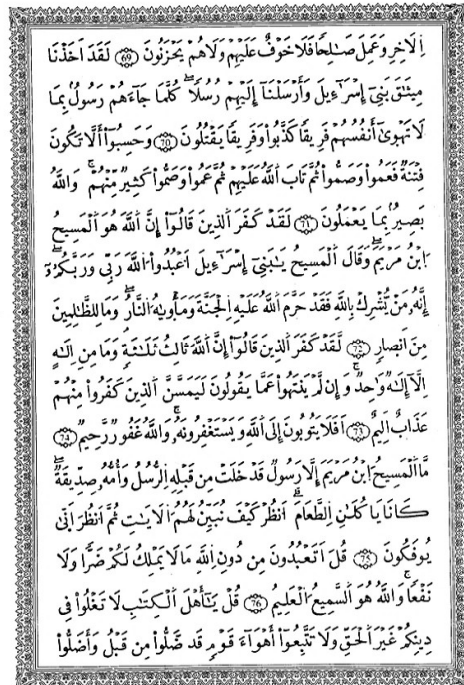 اِ۬لَاخِرِ وَعَمِلَ صَٰلِحًا فَلَا خَوْفٌ عَلَيْهِمْ وَلَا هُمْ يَحْزَنُونَ 69 لَقَدَ اَخَذْنَا
مِيثَٰقَ بَنِيٓ إِسْرَآءِيلَ وَأَرْسَلْنَآ إِلَيْهِمْ رُسُلًا كُلَّمَا جَآءَهُمْ رَسُولُۢ بِمَا
لَا تَهْوِىٰٓ أَنفُسُهُمْ فَرِيقًا كَذَّبُوا۟ وَفَرِيقًا يَقْتُلُونَ 70 وَحَسِبُوٓا۟ أَلَّا تَكُونَ
فِتْنَةٌ فَعَمُوا۟ وَصَمُّوا۟ ثُمَّ تَابَ اَ۬للَّهُ عَلَيْهِمْ ثُمَّ عَمُوا۟ وَصَمُّوا۟ كَثِيرٌ مِّنْهُمْ وَاللَّهُ
بَصِيرُۢ بِمَا يَعْمَلُونَ 71 لَقَدْ كَفَرَ اَ۬لذِينَ قَالُوٓا۟ إِنَّ اَ۬للَّهَ هُوَ اَ۬لْمَسِيحُ
اَ۪بْنُ مَرْيَمَ وَقَالَ اَ۬لْمَسِيحُ يَٰبَنِيٓ إِسْرَآءِيلَ اَ۟عْبُدُوا۟ اُ۬للَّهَ رَبِّي وَرَبَّكُمُۥٓ
إِنَّهُۥ مَنْ يُّشْرِكْ بِاللَّهِ فَقَدْ حَرَّمَ اَ۬للَّهُ عَلَيْهِ اِ۬لْجَنَّةَ وَمَأْوِيٰهُ اُ۬لنَّارُ وَمَا لِلظَّٰلِمِينَ
مِنَ اَنصَارٍ 72 لَّقَدْ كَفَرَ اَ۬لذِينَ قَالُوٓا۟ إِنَّ اَ۬للَّهَ ثَالِثُ ثَلَٰثَةٍ وَمَا مِنِ اِلَٰهٍ
اِلَّآ إِلَٰهٌ وَٰحِدٌ وَإِن لَّمْ يَنتَهُوا۟ عَمَّا يَقُولُونَ لَيَمَسَّنَّ اَ۬لذِينَ كَفَرُوا۟ مِنْهُمْ
عَذَابٌ اَلِيمٌ 73 اَفَلَا يَتُوبُونَ إِلَى اَ۬للَّهِ وَيَسْتَغْفِرُونَهُۥ وَاللَّهُ غَفُورٌ رَّحِيمٌ 74
مَّا اَ۬لْمَسِيحُ اُ۪بْنُ مَرْيَمَ إِلَّا رَسُولٌ قَدْ خَلَتْ مِن قَبْلِهِ اِ۬لرُّسُلُ وَأُمُّهُۥ صِدِّيقَةٌ
كَانَا يَاكُلَٰنِ اِ۬لطَّعَامَ اَ۟نظُرْ كَيْفَ نُبَيِّنُ لَهُمُ اُ۬لَايَٰتِ ثُمَّ اَ۟نظُرَ اَنّىٰ
يُوفَكُونَ 75 قُلَ اَتَعْبُدُونَ مِن دُونِ اِ۬للَّهِ مَا لَا يَمْلِكُ لَكُمْ ضَرًّا وَلَا
نَفْعًا وَاللَّهُ هُوَ اَ۬لسَّمِيعُ اُ۬لْعَلِيمُ 76 قُلْ يَٰٓأَهْلَ اَ۬لْكِتَٰبِ لَا تَغْلُوا۟ فِي
دِينِكُمْ غَيْرَ اَ۬لْحَقِّ وَلَا تَتَّبِعُوٓا۟ أَهْوَآءَ قَوْمٍ قَد ضَّلُّوا۟ مِن قَبْلُ وَأَضَلُّوا۟